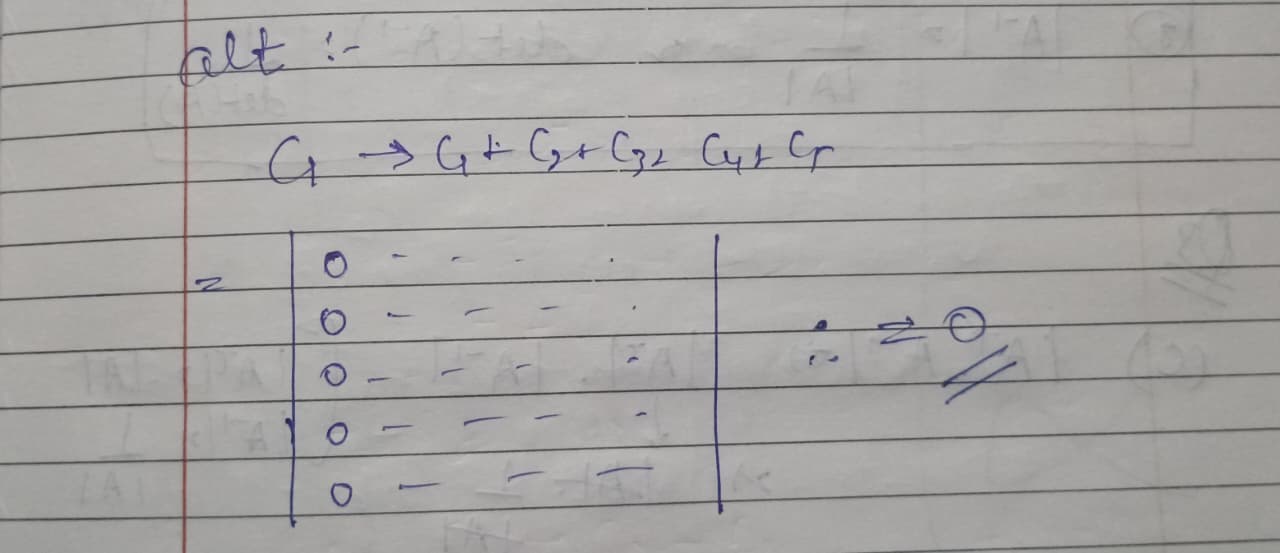 alt :-
C1 → C1 + C2 + C3 + C4 + C5
= | 0 - - - - |
| 0 - - - - |
| 0 - - - - | ∴ = 0
| 0 - - - - |
| 0 - - - |